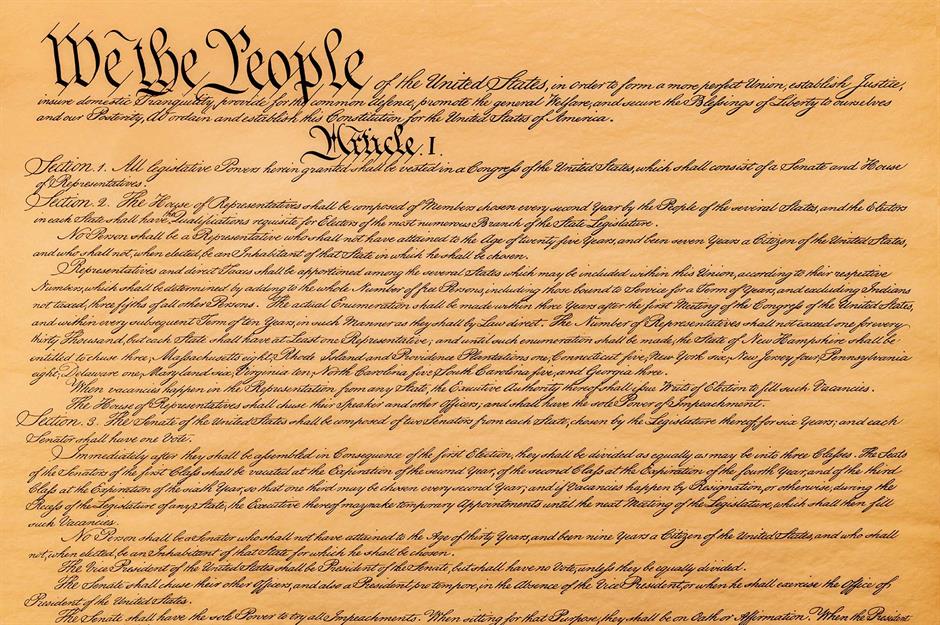 We the People of the United States, in order to form a more perfect Union, establish Justice,
insure domestic Tranquility, provide for the common defence, promote the general Welfare, and secure the Blessings of Liberty to ourselves
and our Posterity, do ordain and establish this Constitution for the United States of America.
Article. I.
Section. 1. All legislative Powers herein granted shall be vested in a Congress of the United States, which shall consist of a Senate and House
of Representatives.
Section. 2. The House of Representatives shall be composed of Members chosen every second Year by the People of the several States, and the Electors
in each State shall have the Qualifications requisite for Electors of the most numerous Branch of the State Legislature.
No Person shall be a Representative who shall not have attained to the Age of twenty five Years, and been seven Years a Citizen of the United States,
and who shall not, when elected, be an Inhabitant of that State in which he shall be chosen.
Representatives and direct Taxes shall be apportioned among the several States which may be included within this Union, according to their respective
Numbers, which shall be determined by adding to the whole Number of free Persons, including those bound to Service for a Term of Years, and excluding Indians
not taxed, three fifths of all other Persons. The actual Enumeration shall be made within three Years after the first Meeting of the Congress of the United States,
and within every subsequent Term of ten Years, in such Manner as they shall by Law direct. The Number of Representatives shall not exceed one for every
thirty Thousand, but each State shall have at Least one Representative; and until such enumeration shall be made, the State of New Hampshire shall be
entitled to chuse three, Massachusetts eight, Rhode Island and Providence Plantations one, Connecticut five, New York six, New Jersey four, Pennsylvania
eight, Delaware one, Maryland six, Virginia ten, North Carolina five, South Carolina five, and Georgia three.
When vacancies happen in the Representation from any State, the Executive Authority thereof shall issue Writs of Election to fill such Vacancies.
The House of Representatives shall chuse their Speaker and other Officers; and shall have the sole Power of Impeachment.
Section. 3. The Senate of the United States shall be composed of two Senators from each State, chosen by the Legislature thereof, for six Years; and each
Senator shall have one Vote.
Immediately after they shall be assembled in Consequence of the first Election, they shall be divided as equally as may be into three Classes. The Seats
of the Senators of the first Class shall be vacated at the Expiration of the second Year, of the second Class at the Expiration of the fourth Year, and of the third
Class at the Expiration of the sixth Year, so that one third may be chosen every second Year; and if Vacancies happen by Resignation, or otherwise, during the
Recess of the Legislature of any State, the Executive thereof may make temporary Appointments until the next Meeting of the Legislature, which shall then fill
such Vacancies.
No Person shall be a Senator who shall not have attained to the Age of thirty Years, and been nine Years a Citizen of the United States, and who shall
not, when elected, be an Inhabitant of that State for which he shall be chosen.
The Vice President of the United States shall be President of the Senate, but shall have no Vote, unless they be equally divided.
The Senate shall chuse their other Officers, and also a President pro tempore, in the Absence of the Vice President, or when he shall exercise the Office of
President of the United States.
The Senate shall have the sole Power to try all Impeachments. When sitting for that Purpose, they shall be on Oath or Affirmation. When the President